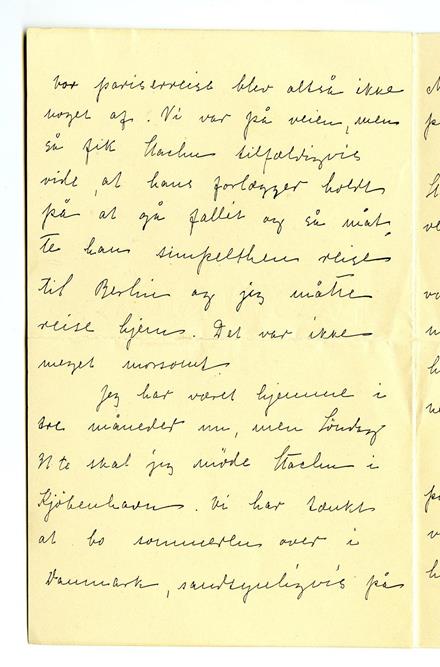 vor pariserreise blev altså ikke
noget af. Vi var på veien, men
så fik Stachu tilfældigvis
vide, at hans forlægger holdt
på at gå fallit og så måt-
te han simpelthen reise
til Berlin og jeg måtte
reise hjem. Det var ikke
meget morsomt.
Jeg har været hjemme i
tre måneder nu, men Søndag
te skal jeg møde Stachu i
Kjöbenhavn. Vi har tænkt
at bo sommeren over i
Danmark, sandsynligvis på